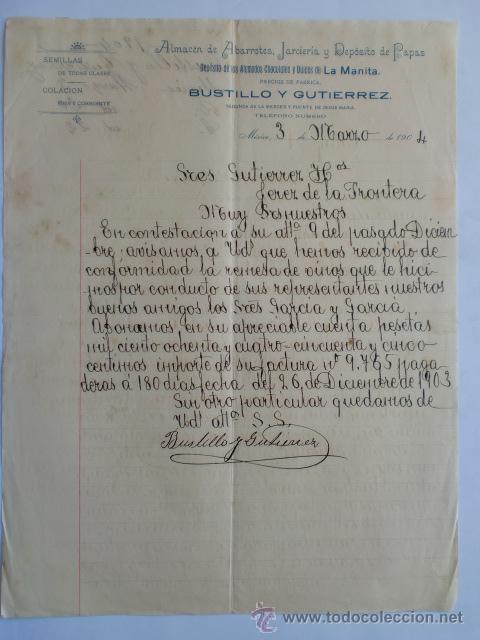 Almacén de Abarrotes, Jarciería y Depósito de Papas
SEMILLAS
DE TODAS CLASES
COLACION
FINA Y CORRIENTE
Depósito de los Afamados Chocolates y Dulces de La Manita.
PRECIOS DE FABRICA.
BUSTILLO Y GUTIERREZ.
SEGUNDA DE LA MERCED Y PUENTE DE JESUS MARIA.
TELEFONO NUMERO
México, 3 de Marzo de 1904
Sres Gutierrez Hos
Jerez de la Frontera
Muy Sres nuestros
En contestacion a su atta. 9 del pasado Diciem
-bre; avisamos, a Uds que hemos recibido de
conformidad la remesa de vinos que le hici
mos por conducto de sus representantes nuestros
buenos amigos los Sres Garcia y Garcia
Abonamos en su apreciable cuenta pesetas
mil ciento ochenta y cuatro-cincuenta y cinco
centimos importe de su factura nº 9.765 paga
deras á 180 dias fecha del 26, de Diciembre de 1903
Sin otro particular quedamos de
Uds attos S. S.
Bustillo y Gutierrez
todocoleccion
www.todocoleccion.net